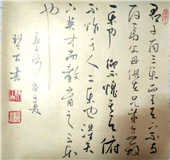 君子有三樂而王天下不與
存焉父母俱存兄弟無故
一樂也仰不愧於天俯
不怍於人二樂也得天
下英才而教育之三樂
也